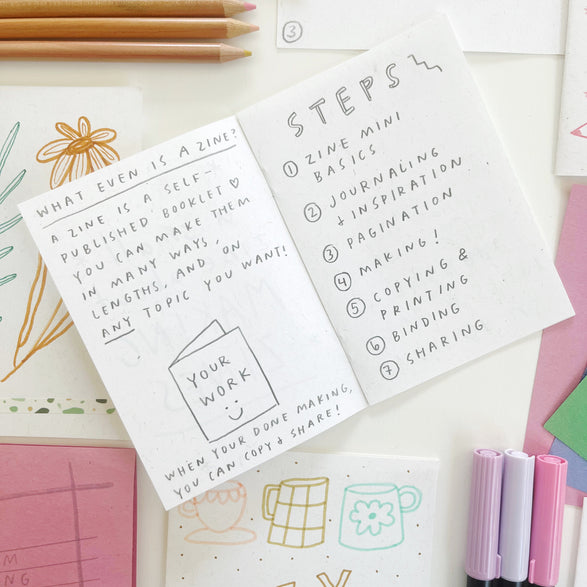 3
WHAT EVEN IS A ZINE?
A ZINE IS A SELF-
PUBLISHED BOOKLET ♡
YOU CAN MAKE THEM
IN MANY WAYS,
LENGTHS, AND, ON
ANY TOPIC YOU WANT!
YOUR
WORK
WHEN YOUR DONE MAKING,
YOU CAN COPY & SHARE!
STEPS
1 ZINE MINI
BASICS
2 JOURNALING
+ INSPIRATION
3 PAGINATION
4 MAKING!
5 COPYING &
PRINTING
6 BINDING
7 SHARING